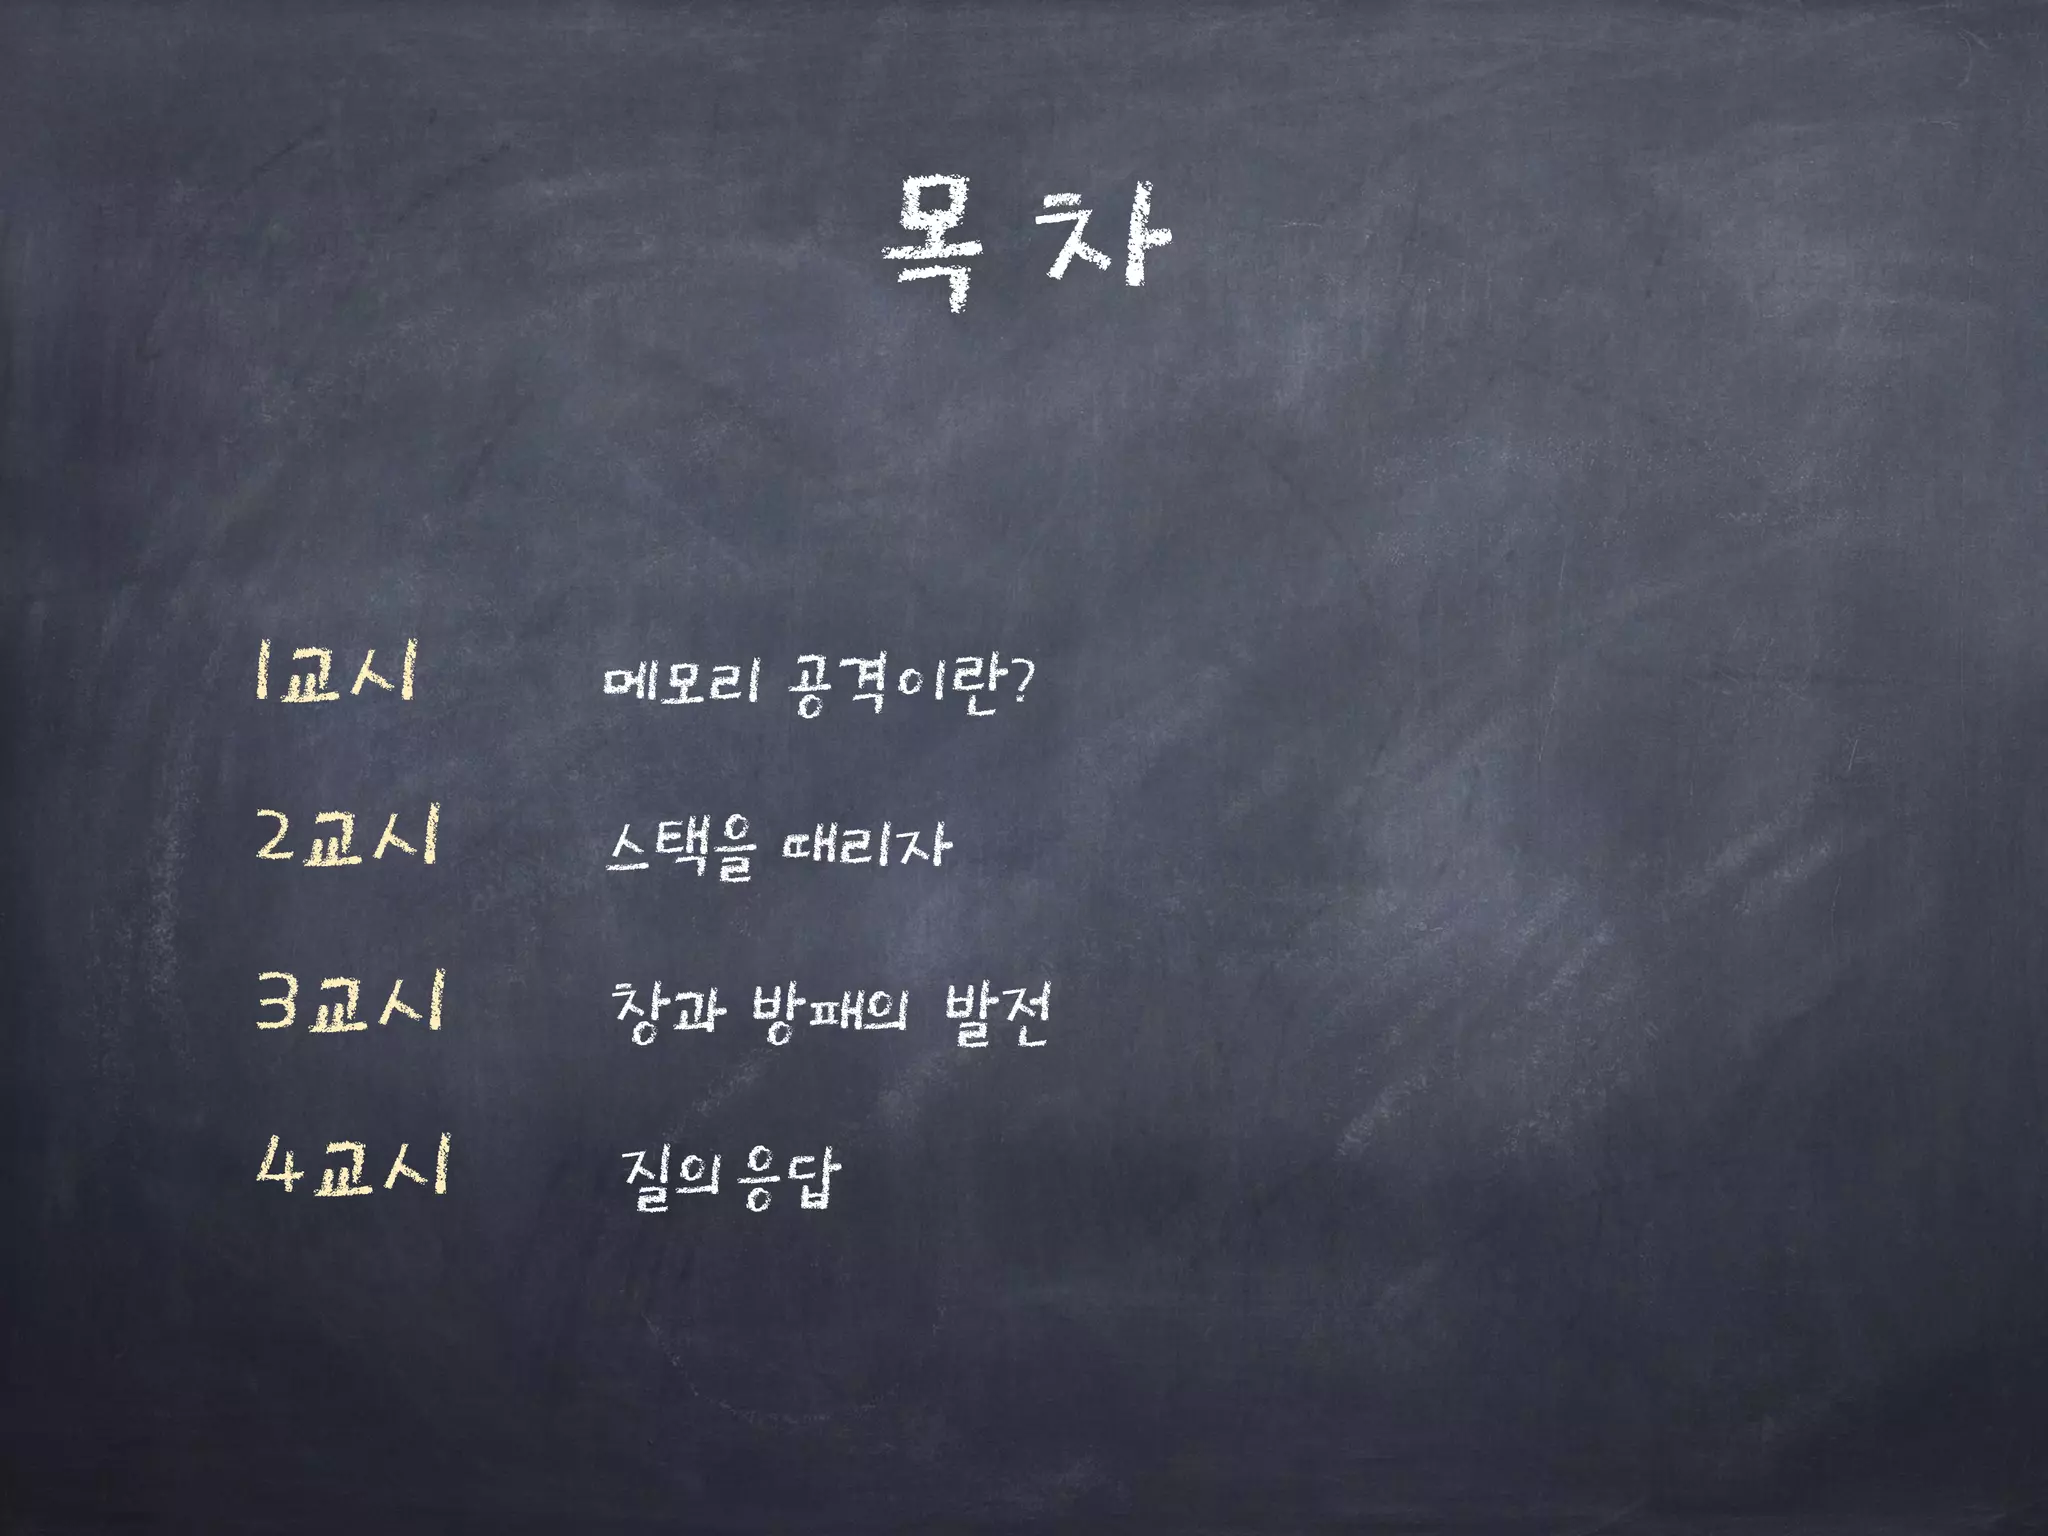 목차
1교시 메모리 공격이란?
2교시 스택을 때리자
3교시 창과 방패의 발전
4교시 질의응답